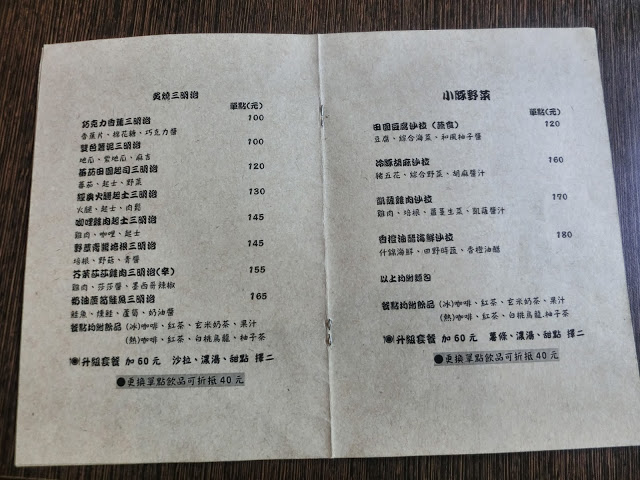 炙燒三明治
單點(元)
巧克力香蕉三明治 100
香蕉片、棉花糖、巧克力醬
雙色薯泥三明治 100
地瓜、紫地瓜、麻吉
蕃茄田園起司三明治 120
蕃茄、起士、野菜
經典火腿起士三明治 130
火腿、起士、肉鬆
咖哩雞肉起士三明治 145
雞肉、咖哩、起士
野菇青醬培根三明治 145
培根、野菇、青醬
芥茉莎莎雞肉三明治(辛) 155
雞肉、莎莎醬、墨西哥辣椒
奶油蘆筍鮭魚三明治 165
鮭魚、燻鮭、蘆筍、奶油醬
餐點均附飲品 (冰)咖啡、紅茶、玄米奶茶、果汁
(熱)咖啡、紅茶、白桃烏龍、柚子茶
升級套餐 加60元 沙拉、濃湯、甜點 擇二
●更換單點飲品可折抵40元
小豚野菜
單點(元)
田園豆腐沙拉(蔬食) 120
豆腐、綜合海菜、和風柚子醬
冷豚胡麻沙拉 160
豬五花、綜合野菜、胡麻醬汁
凱薩雞肉沙拉 170
雞肉、培根、蘿蔓生菜、凱薩醬汁
香橙油醋海鮮沙拉 180
什錦海鮮、田野時蔬、香橙油醋
以上均附麵包
餐點均附飲品 (冰)咖啡、紅茶、玄米奶茶、果汁
(熱)咖啡、紅茶、白桃烏龍、柚子茶
升級套餐 加60元 薯條、濃湯、甜點 擇二
●更換單點飲品可折抵40元